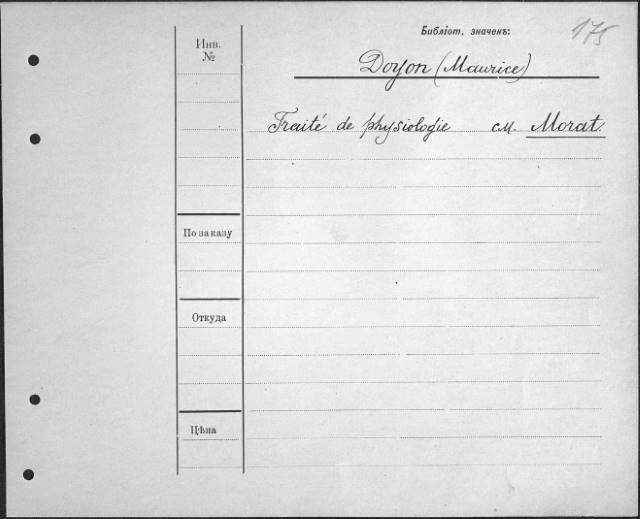 Библіот. значекъ:
175
Инв.
№
Doyon (Maurice)
Traité de physiologie см. Morat.
По заказу
Откуда
Цѣна